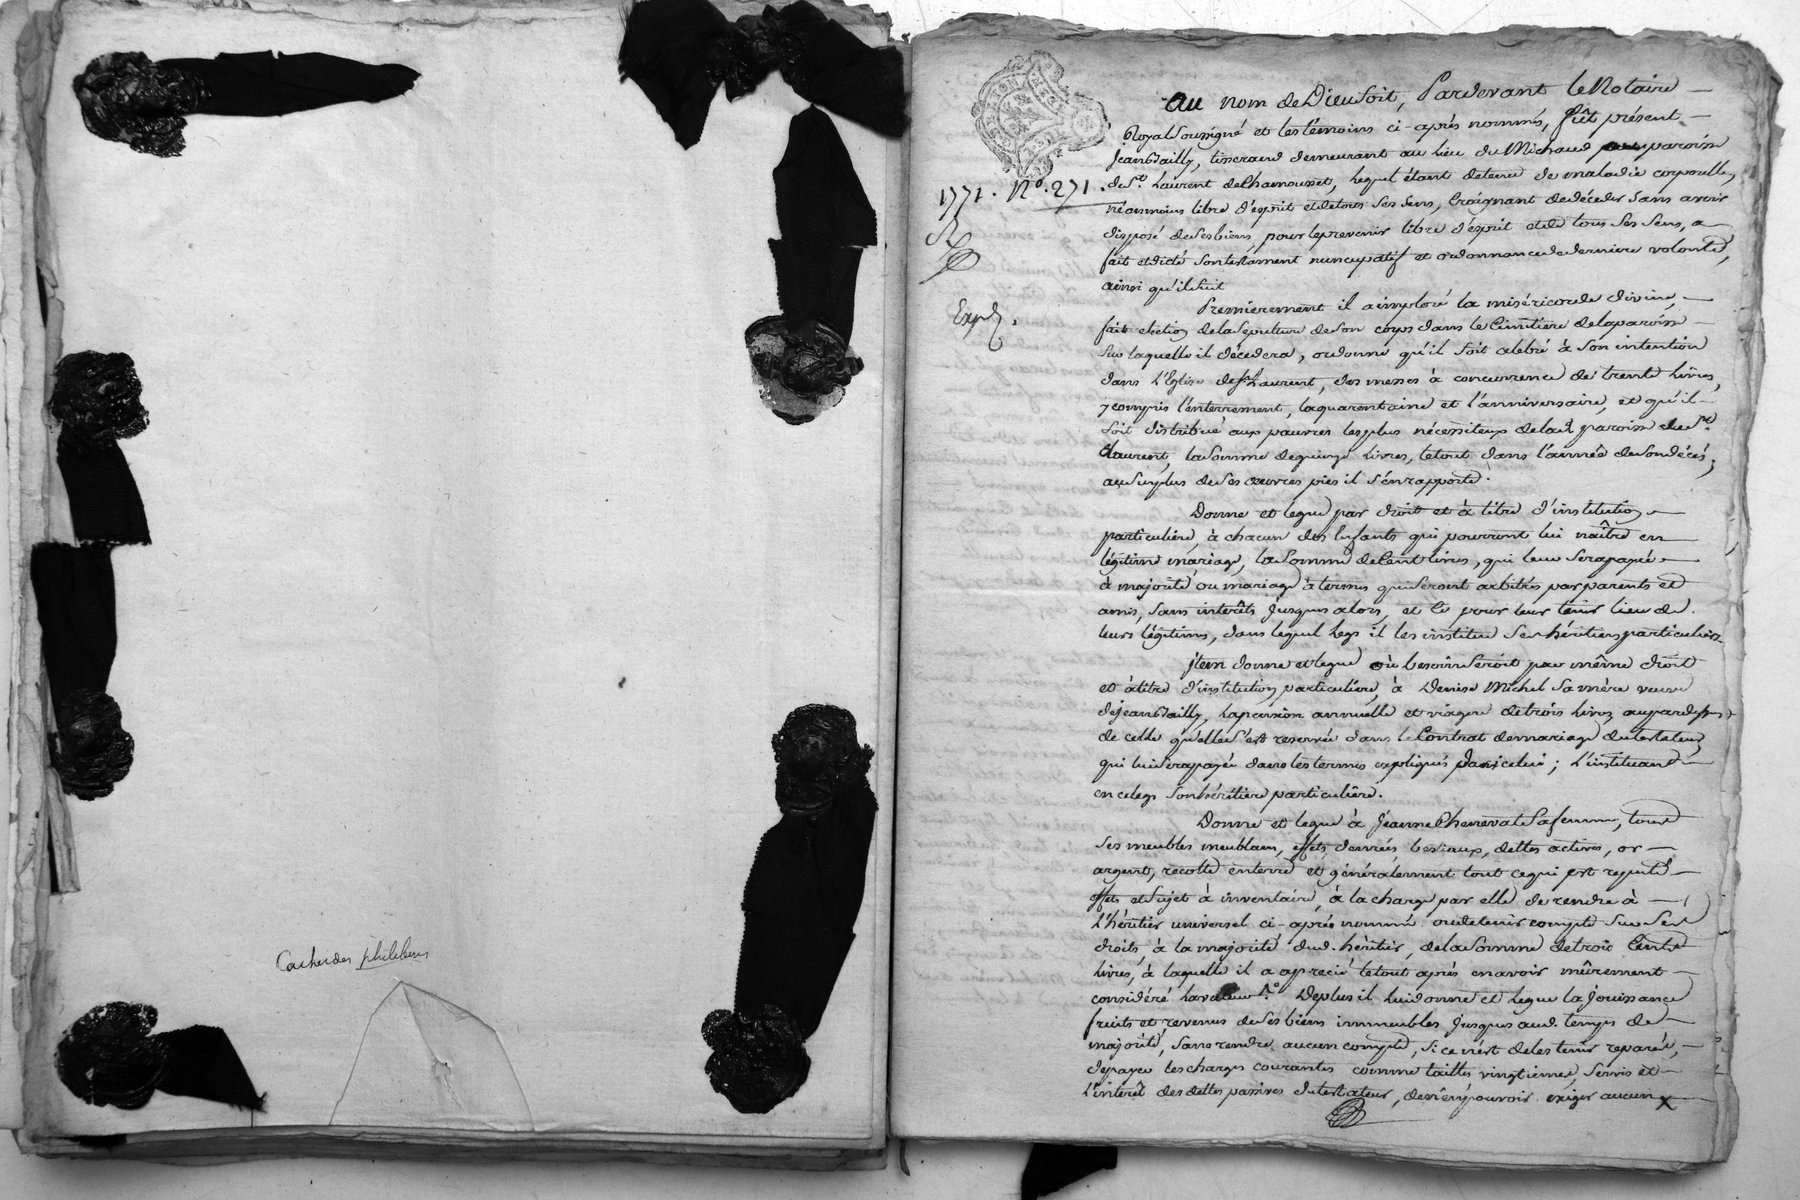 Cachet des philiberts
Au nom de Dieu soit, Pardevant le Notaire
Royal soussigné et les témoins ci-après nommés, fût présent
Jean Bailly, tisserand demeurant au lieu du Michaud paroisse
1771. N°. 271.
de St. Laurent de Chamousset, lequel étant detenu de maladie corporelle,
néanmoins libre d'esprit et de tous ses sens, Craignant de décéder sans avoir
disposé de ses biens, pour le prevenir libre d'esprit et de tous ses sens, a
fait et dicté son testament nuncupatif et ordonnance de derniere volonté,
ainsi qu'il suit
Expd.
Premierement il a imploré la miséricorde divine,
fait election de la sepulture de son corps dans le Cimitiere de la paroisse
sur laquelle il décedera, ordonne qu'il soit celebré à son intention
dans l'Eglise de St Laurent, des messes à concurrence de trente livres,
y compris l'enterrement, la quarentaine et l'anniversaire, et qu'il
soit distribué aux pauvres les plus nécessiteux de lad. paroisse de St.
Laurent, la somme de quinze livres, le tout dans l'année de son décés,
au surplus de ses œuvres pies il s'en rapporte.
Donne et legue par droit et à titre d'institution
particuliere, à chacun des Enfants qui pourront lui naître en
légitime mariage, la somme de Cent livres, qui leur sera payée
à majorité ou mariage à termes qui seront arbitrés par parents et
amis, sans interêts jusques alors, et ce pour leur tenir lieu de
leurs légitimes, dans lequel legs il les institue ses héritiers particuliers.
Item donne et legue où besoin seroit par même droit
et à titre d'institution particuliere, à Denise Michel sa mère veuve
de Jean Bailly, la pension annuelle et viagere de trois livres, au par dessus
de celle qu'elle s'est reservée dans le Contrat de mariage du testateur,
qui lui sera payée dans les termes expliqués par icelui; l'instituant
en ce legs son héritiere particuliére.
Donne et legue à Jeanne Chenevat sa femme, tous
ses meubles meublans, effets, denrées, bestiaux, dettes actives, or
argent, recolte enterre et généralement tout ce qui est reputé
effets et sujet à inventaire, à la charge par elle de rendre à
l'héritier universel ci-après nommé ou de tenir compte sur ses
droits, à la majorité dud. héritier, de la somme de trois Cents
livres, à laquelle il a aprecié le tout après en avoir mûrement
considéré la valeur. De plus il lui donne et legue la jouissance
fruits et revenus de ses biens immeubles jusques aud. temps de
majorité, sans rendre aucun compte, si ce n'est de les tenir reparés,
de payer les charges courantes comme tailles vingtiemes, servis et
l'interêt des dettes passives du testateur, de n'en pouvoir exiger aucun X